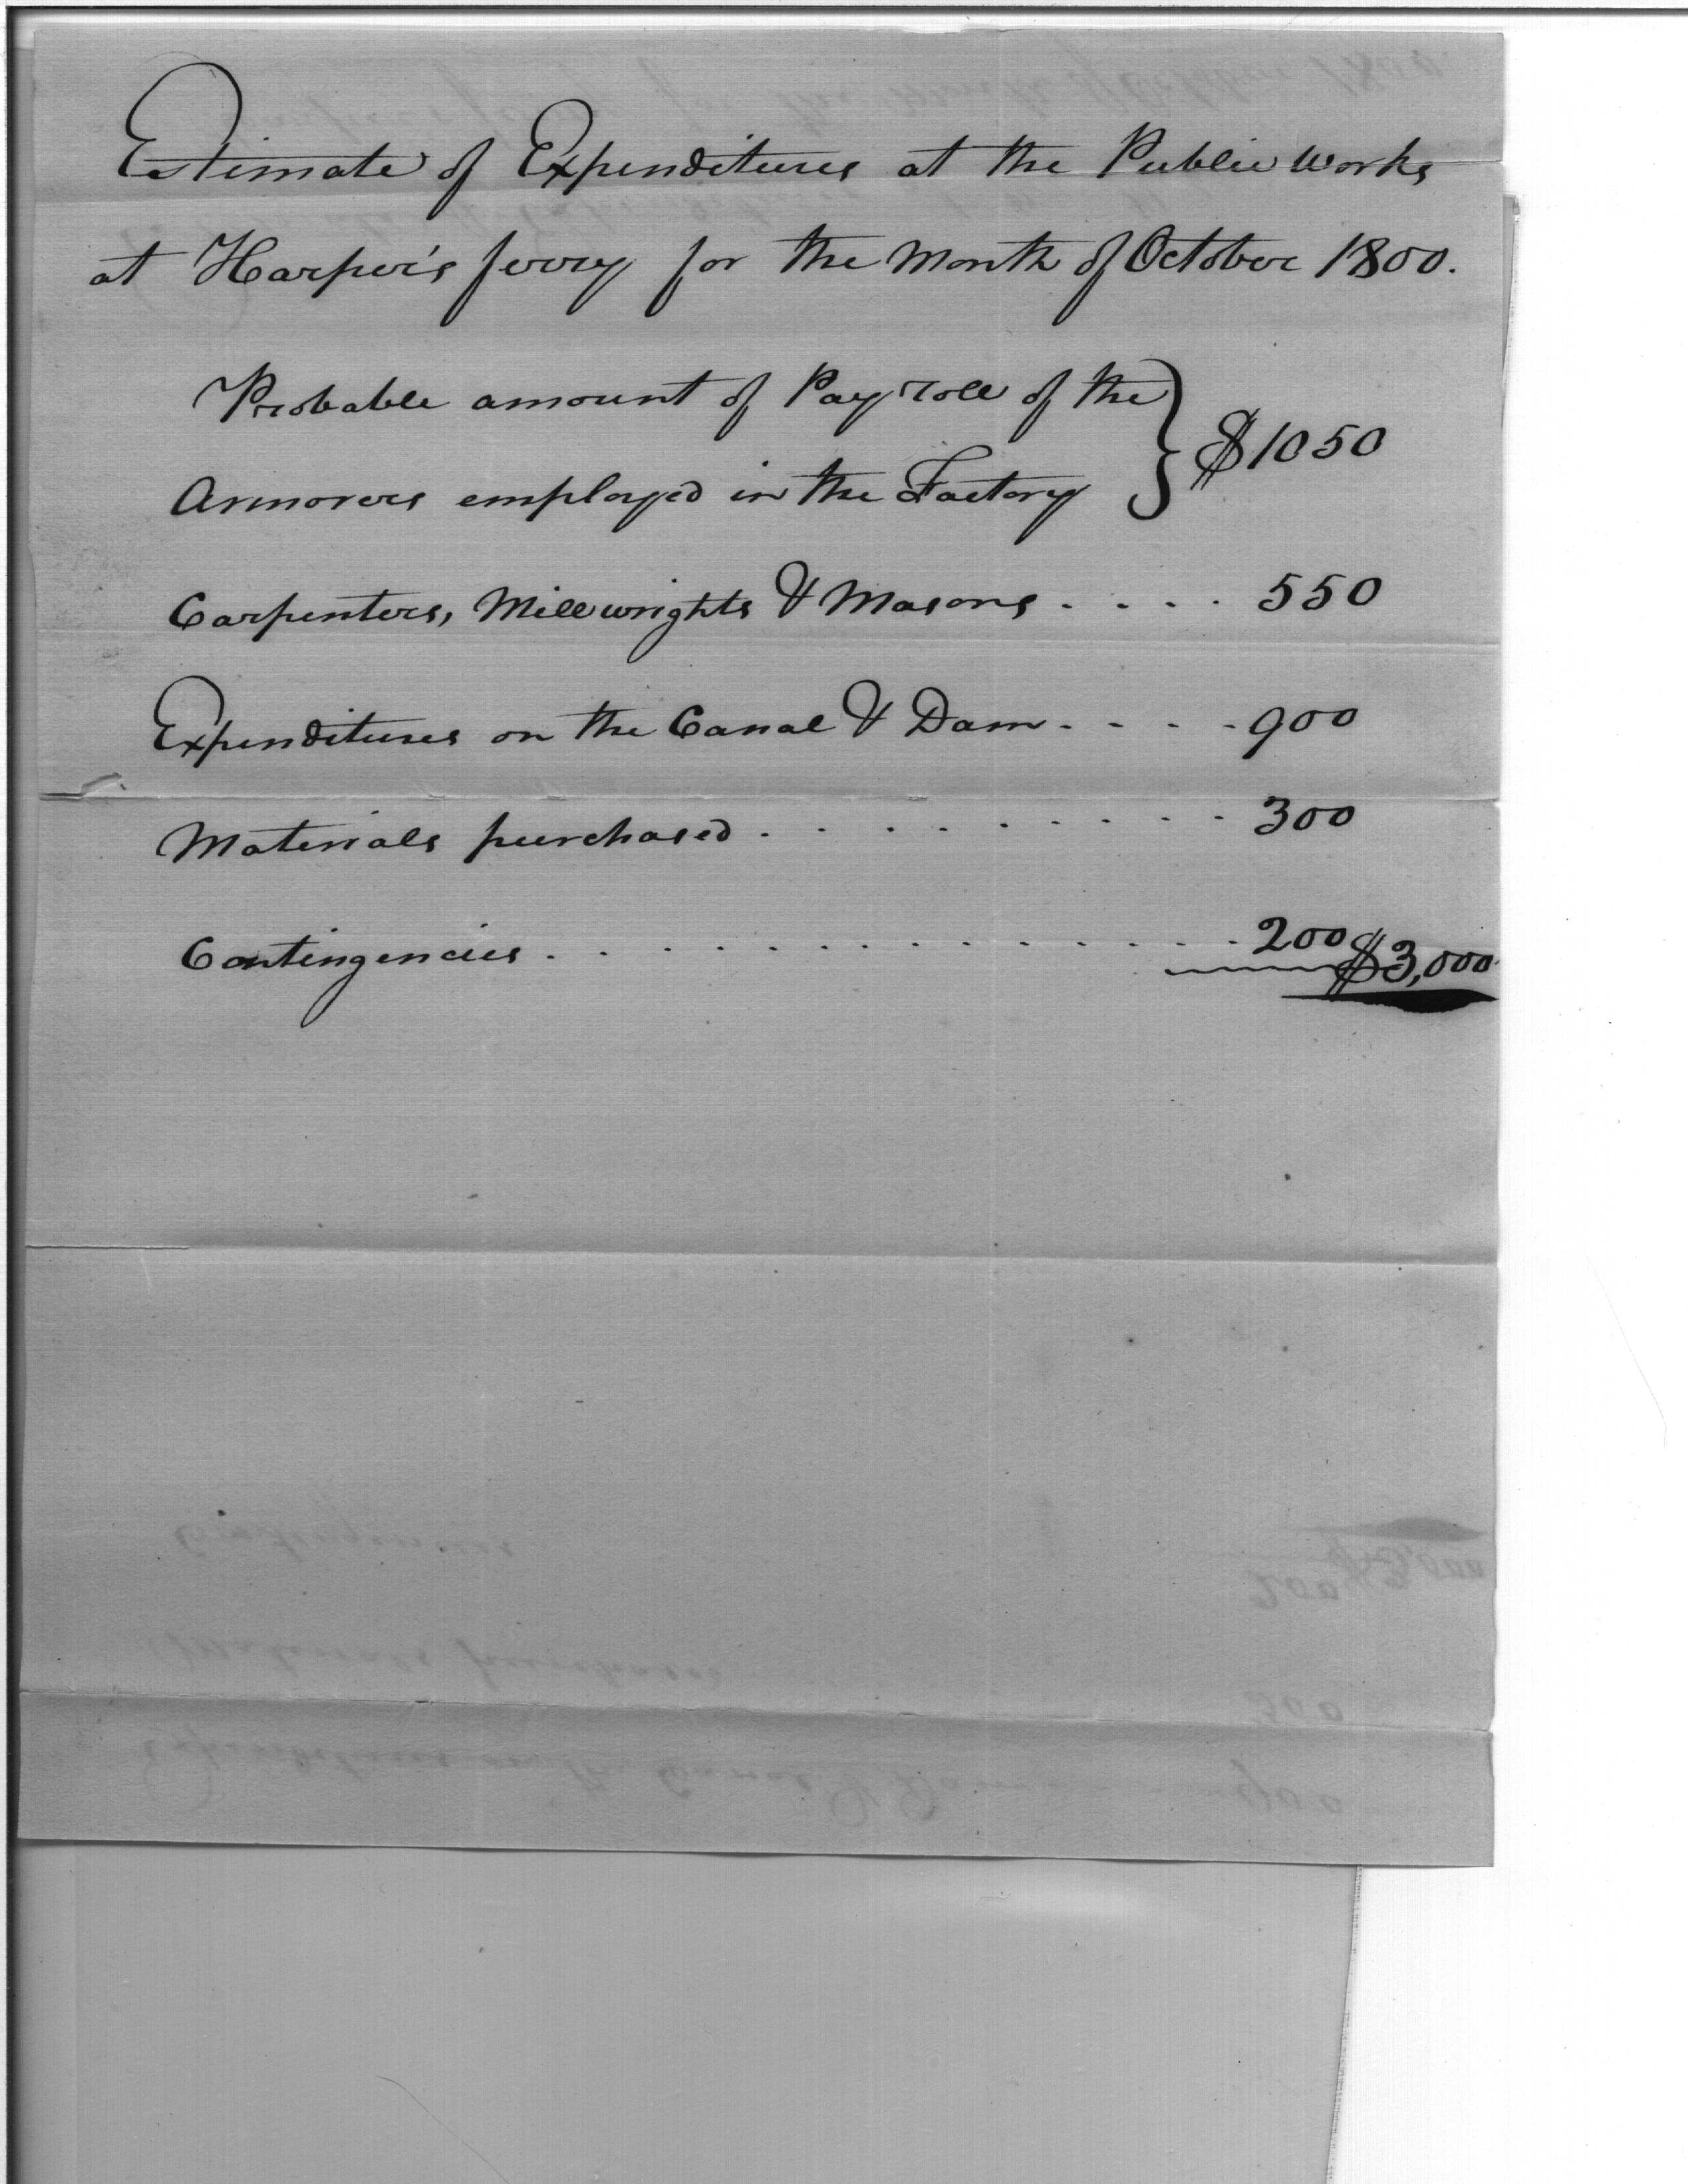 Estimate of Expenditures at the Public Works
at Harper's ferry for the Month of October 1800.
Probable amount of Pay roll of the } $1050
Armorers employed in the Factory
Carpenters, Millwrights & Masons . . . . 550
Expenditures on the Canal & Dam . . . . 900
Materials purchased . . . . . . . . . . 300
Contingencies . . . . . . . . . . . . . . 200 $3,000